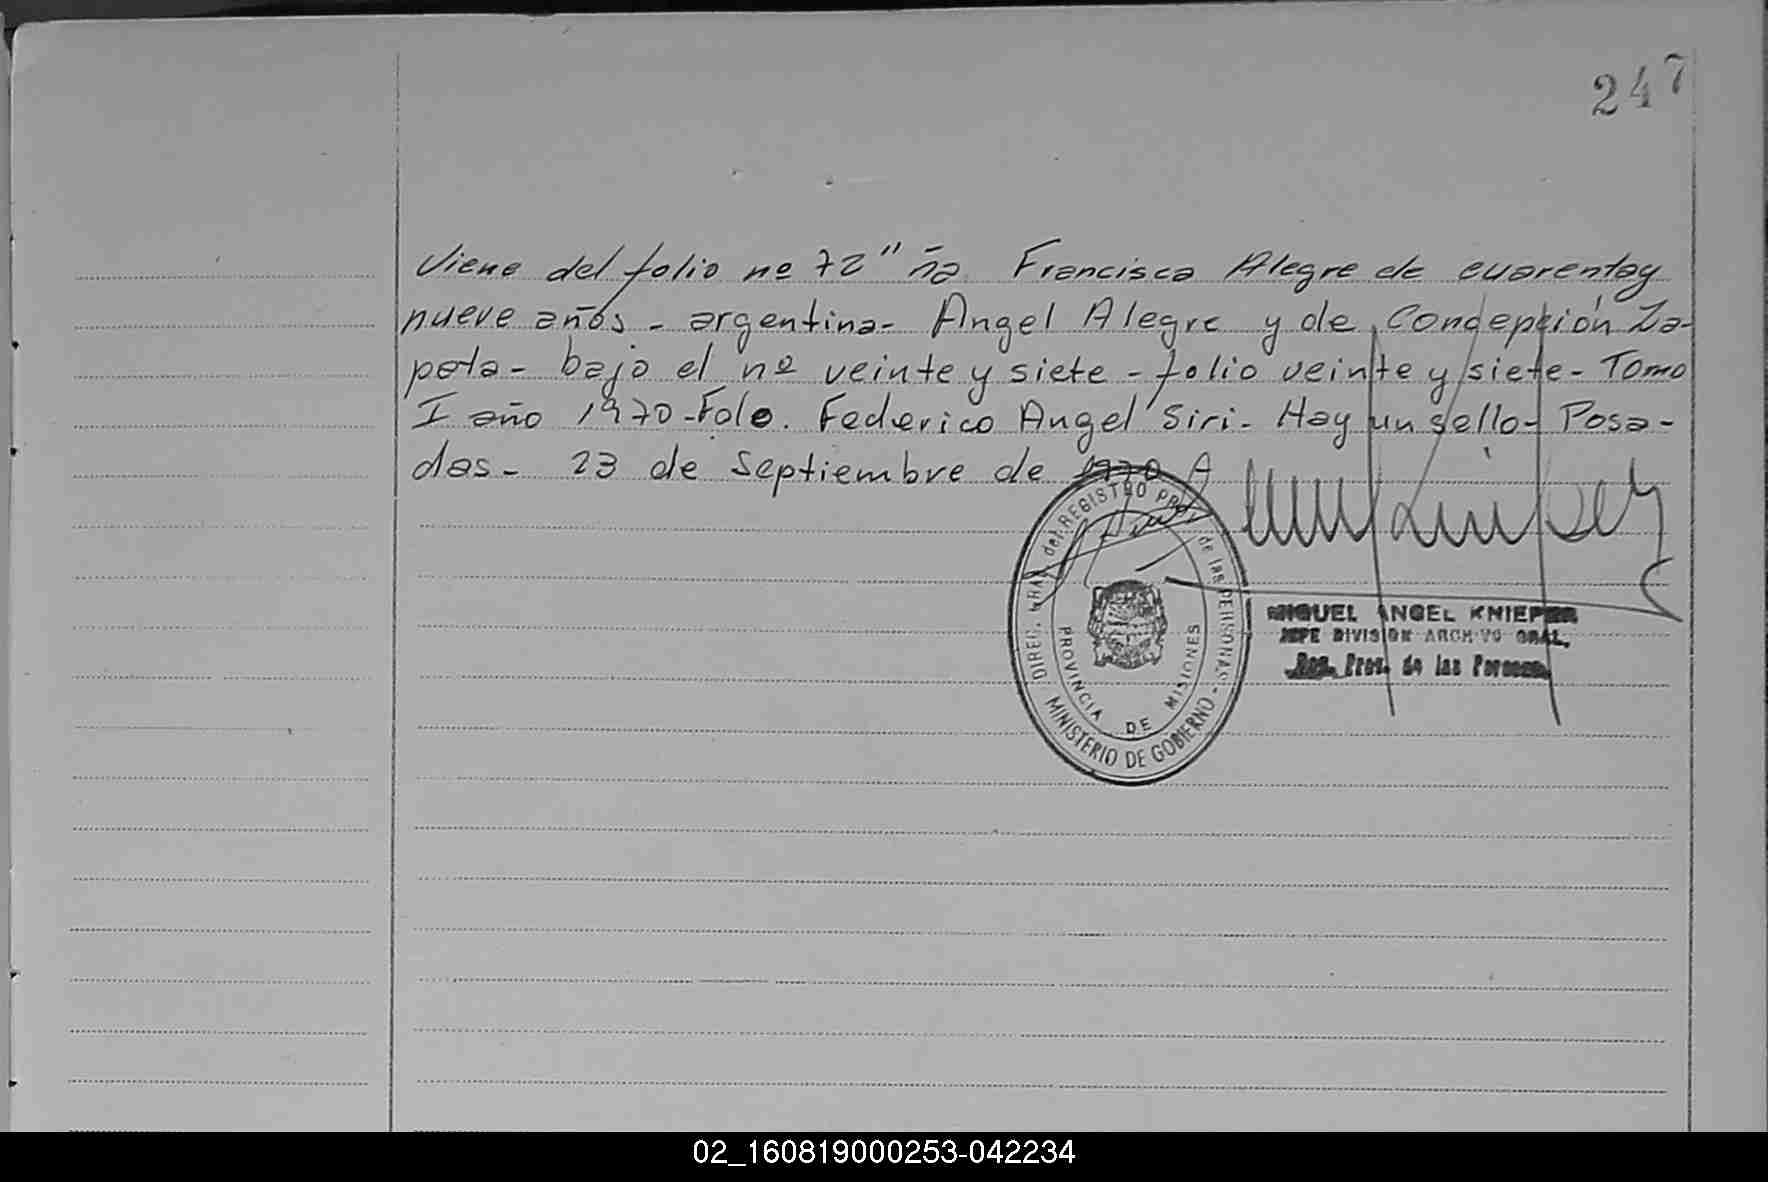 247
Viene del folio nº 72" ña Francisca Alegre de cuarentay
nueve años - argentina - Angel Alegre y de Concepción Za-
pata - bajo el nº veinte y siete - folio veinte y siete - Tomo
I año 1970 - Fdo. Federico Angel Siri - Hay un sello - Posa-
das - 23 de Septiembre de 1970
DIREC. GRAL del REGISTRO PROV. de las PERSONAS -
MINISTERIO DE GOBIERNO
PROVINCIA DE MISIONES
MIGUEL ANGEL KNIEPER
JEFE DIVISION ARCHIVO GRAL.
Reg. Prov. de las Personas
02_160819000253-042234